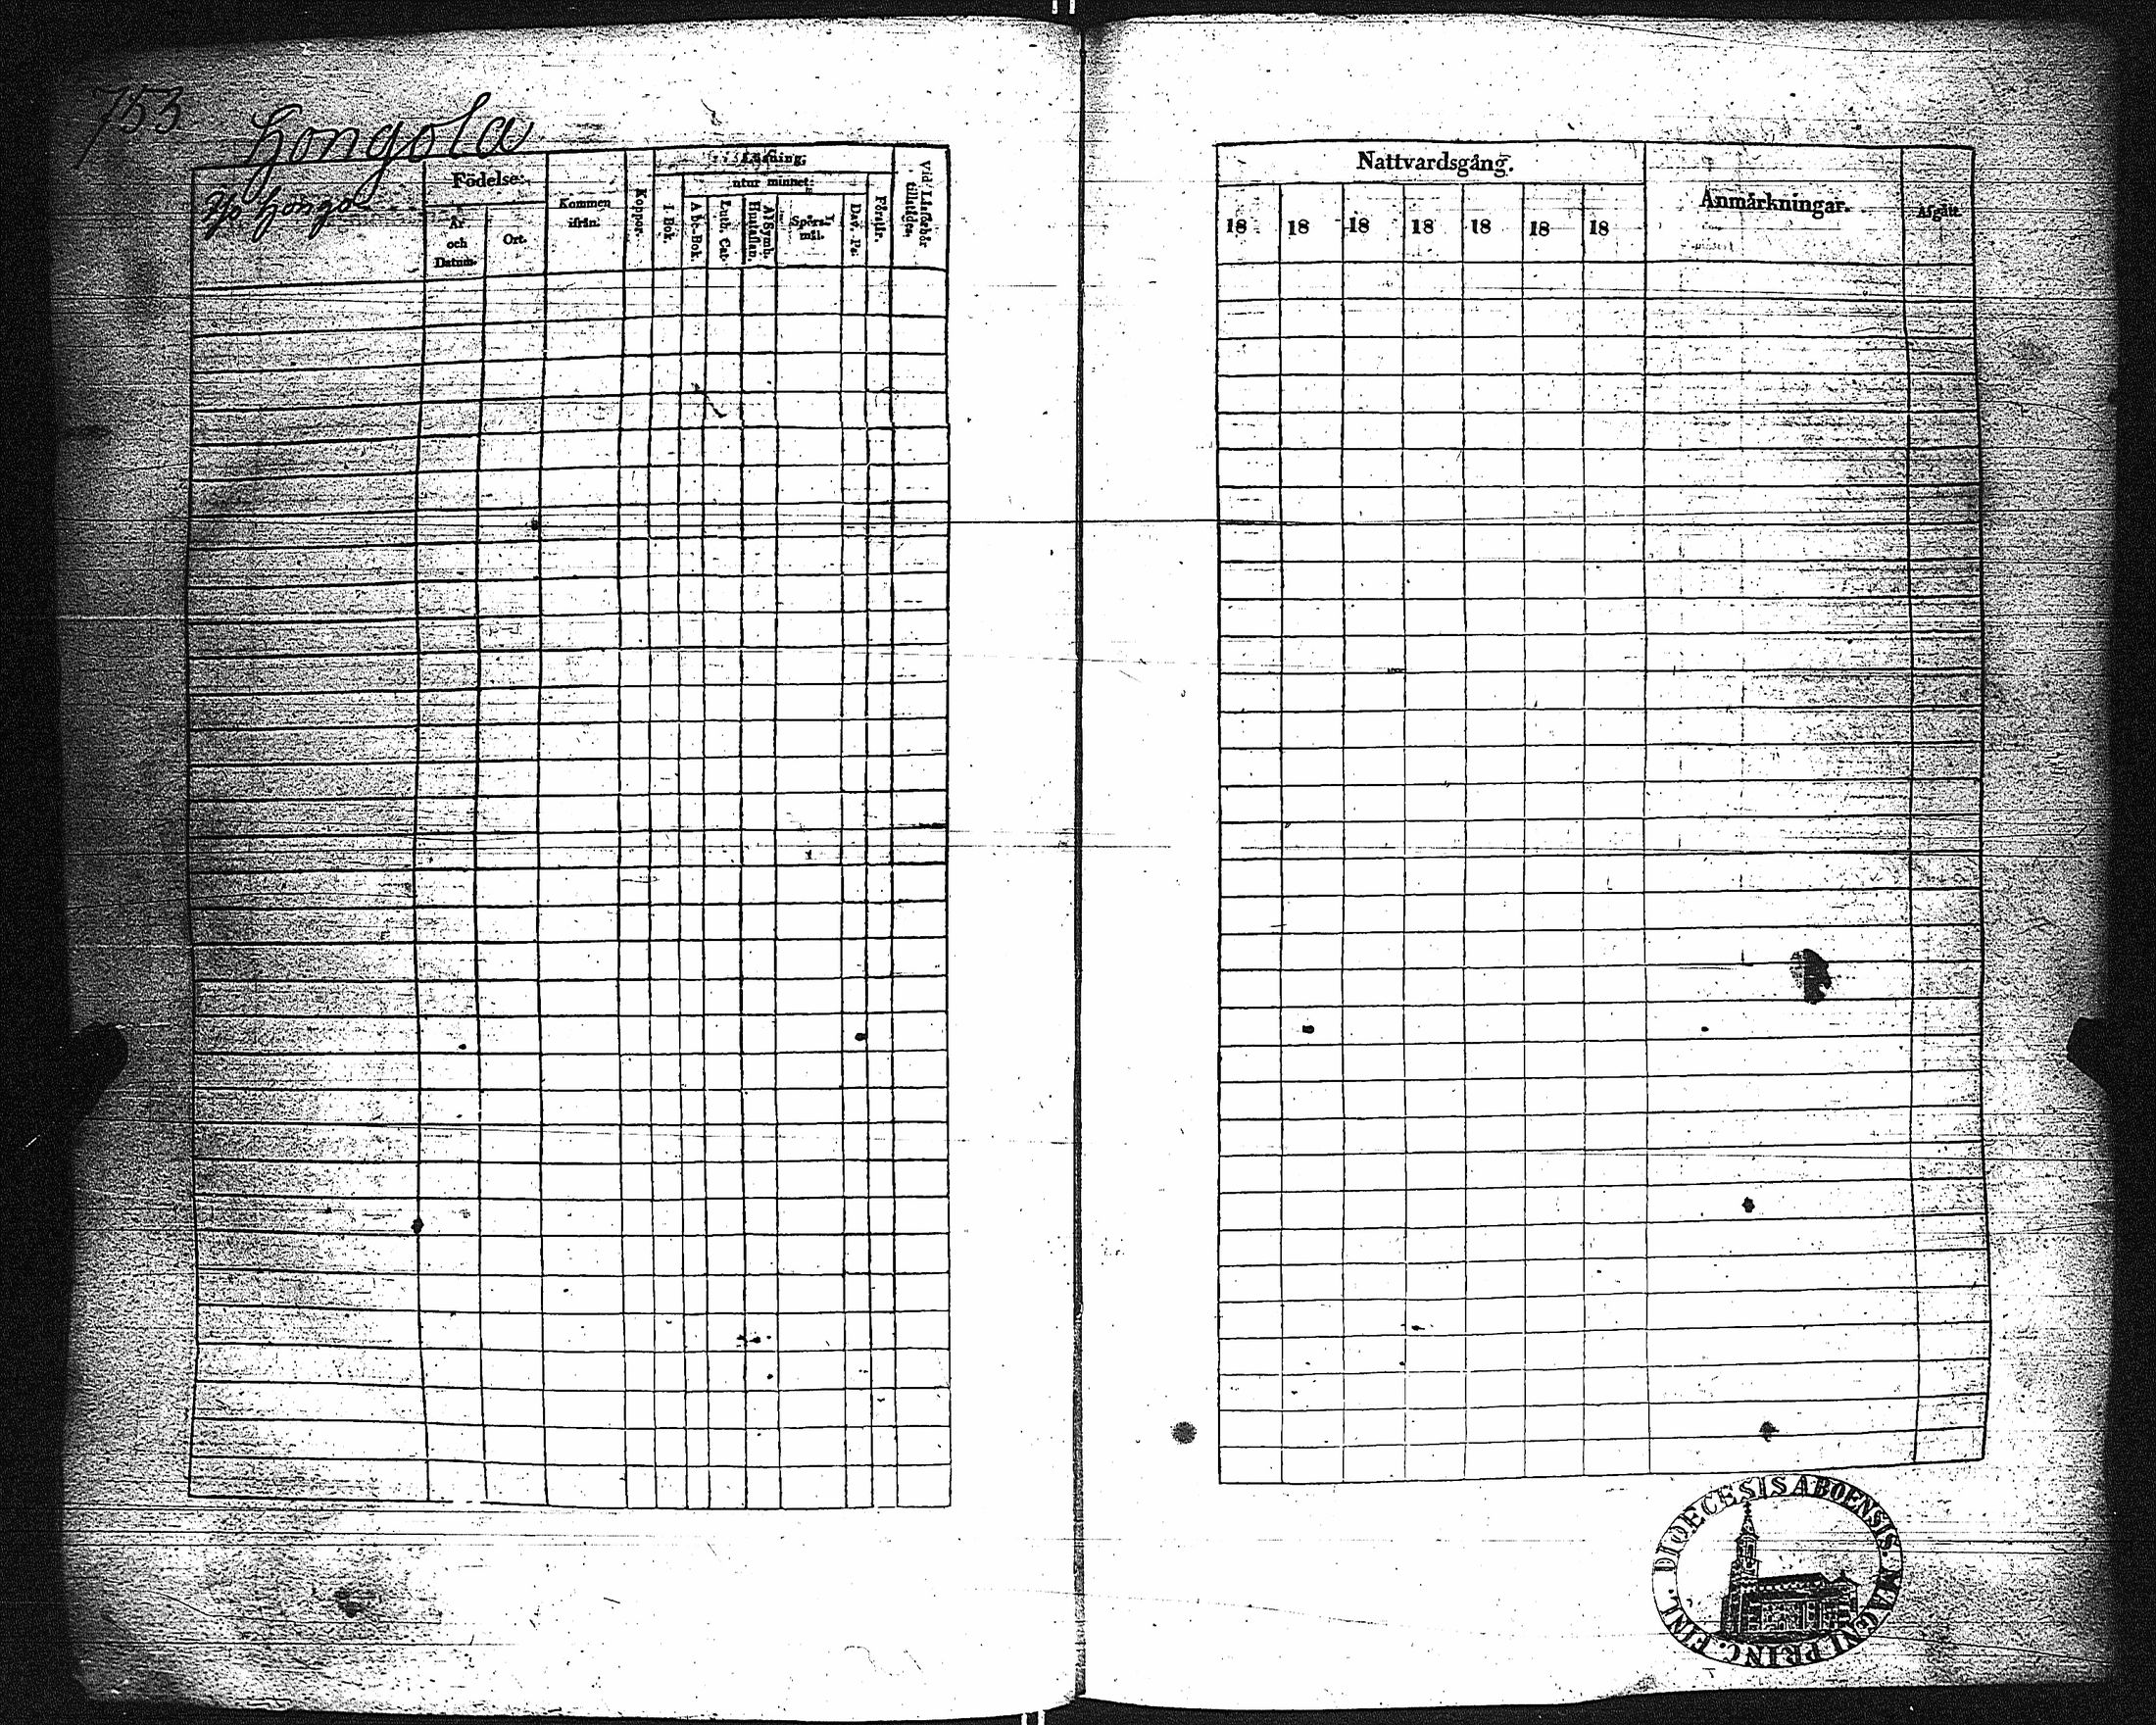 753
Hongola
Hongo
Födelse:
År och Datum.
Ort.
Kommen ifrån.
Koppor.
Läsning,
I Bok.
utur minnet:
A bc-Bok.
Luth. Cat.
Hustaflan. A!Symb.
Spörsmål.
Dav. Ps.
Förstår.
vid Läsförhör tillstädes.
Nattvardsgång.
18 18 18 18 18 18 18
Anmärkningar.
Afgått.
DIOECESIS ABOENSIS. MAGNI PRINC. FINL.